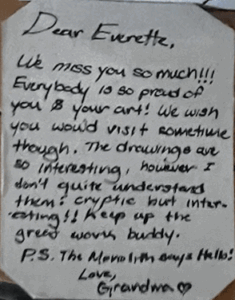 Dear Everette,
We miss you so much!!!
Everybody is so proud of
you & your art! We wish
you would visit sometime
though. The drawings are
so interesting, however I
don't quite understand
them! cryptic but inter-
esting!! Keep up the
great work buddy.
P.S. The Monolith says Hello!
Love,
Grandma ♡